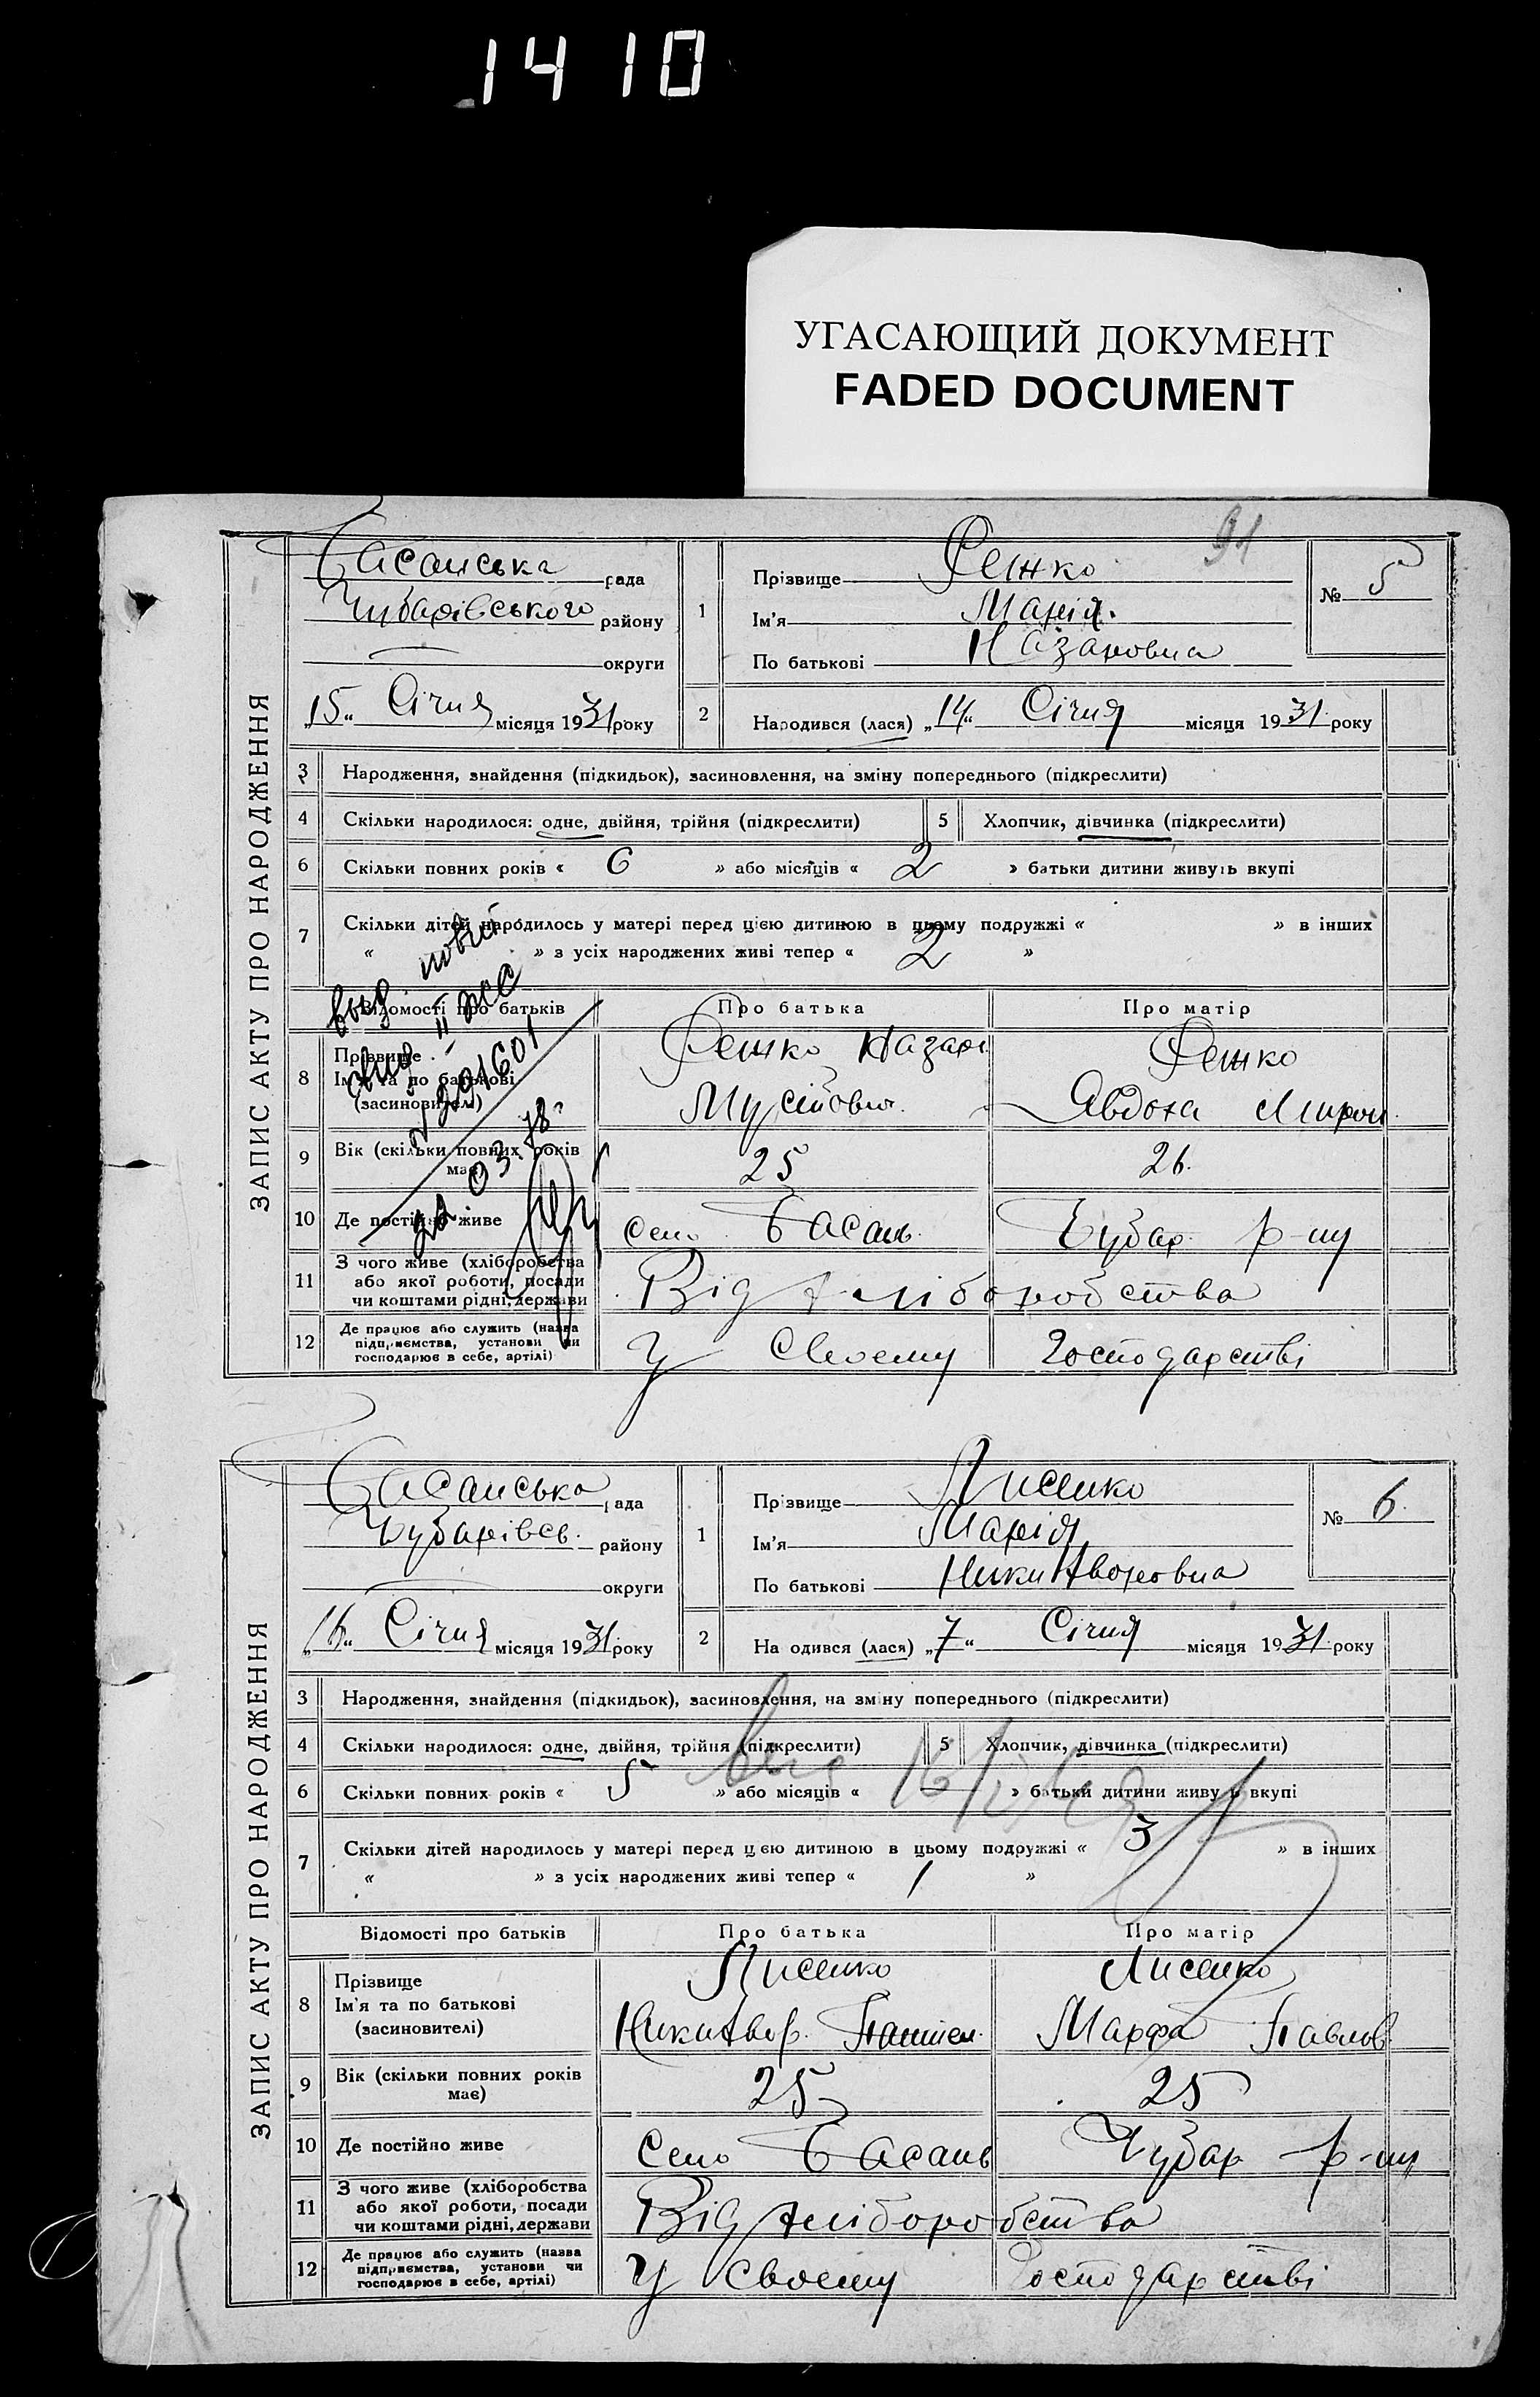 1410
УГАСАЮЩИЙ ДОКУМЕНТ
FADED DOCUMENT
91
ЗАПИС АКТУ ПРО НАРОДЖЕННЯ
Басанська рада
Чубарівського району
округи
„15“ Січня місяця 1931 року
1
Прізвище Фенко
Ім’я Марія.
По батькові Назаровна
№ 5
2 Народився (лася) „14“ Січня місяця 1931 року
3 Народження, знайдення (підкидьок), засиновлення, на зміну попереднього (підкреслити)
4 Скільки народилося: одне, двійня, трійня (підкреслити) 5 Хлопчик, дівчинка (підкреслити)
6 Скільки повних років « 6 » або місяців « 2 » батьки дитини живуть вкупі
7 Скільки дітей народилось у матері перед цією дитиною в цьому подружжі « » в інших
« » з усіх народжених живі тепер « 2 »
Відомості про батьків Про батька Про матір
8 Прізвище
Ім’я та по батькові
(засиновителі)
Назар
Явдоха Мирон.
9 Вік (скільки повних років має) 25 26.
10 Де постійно живе село Басань. Чубар. р-ну
11 З чого живе (хліборобства
або якої роботи, посади
чи коштами рідні, держави
Від хліборобства
12 Де працює або служить (назва
підприємства, установи чи
господарює в себе, артілі)
У своему господарстві
291601
03.78
ЗАПИС АКТУ ПРО НАРОДЖЕННЯ
Басанська рада
Чубарівсь. району
округи
„16“ Січня місяця 1931 року
1
Прізвище Лисенко
Ім’я Марія
По батькові Никифоровна
№ 6.
2 На одився (лася) „7“ Січня місяця 1931 року
3 Народження, знайдення (підкидьок), засиновлення, на зміну попереднього (підкреслити)
4 Скільки народилося: одне, двійня, трійня (підкреслити) 5 Хлопчик, дівчинка (підкреслити)
6 Скільки повних років « 5 » або місяців « — » батьки дитини живуть вкупі
7 Скільки дітей народилось у матері перед цією дитиною в цьому подружжі « 3 » в інших
« » з усіх народжених живі тепер « 1 »
Відомості про батьків Про батька Про матір
8 Прізвище
Ім’я та по батькові
(засиновителі)
Лисенко Лисенко
Никифор. Пантел. Марфа Павлов
9 Вік (скільки повних років має) 25 25
10 Де постійно живе Село Басань Чубар р-ну
11 З чого живе (хліборобства
або якої роботи, посади
чи коштами рідні, держави
Від хліборобства
12 Де працює або служить (назва
підприємства, установи чи
господарює в себе, артілі)
У своєму господарстві